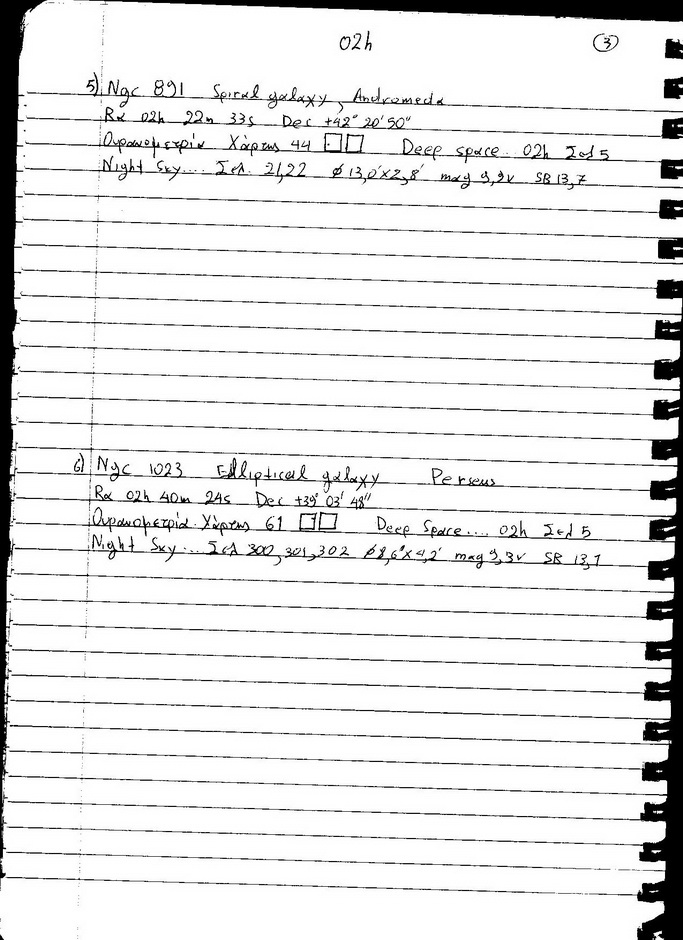 02h
3
5) Ngc 891 Spiral galaxy, Andromeda
Ra 02h 22m 33s Dec +42° 20' 50"
Ουρανομετρία Χάρτης 44 Deep space... 02h Σελ 5
Night Sky.... Σελ. 21,22 ϕ 13,0'x2,8' mag 9,9v SB 13,7
6) Ngc 1023 Elliptical galaxy Perseus
Ra 02h 40m 24s Dec +39° 03' 48"
Ουρανομετρία Χάρτης 61 Deep Space.... 02h Σελ 5
Night Sky... Σελ 300,301,302 ϕ 8,6'x4,2' mag 9,3v SB 13,1